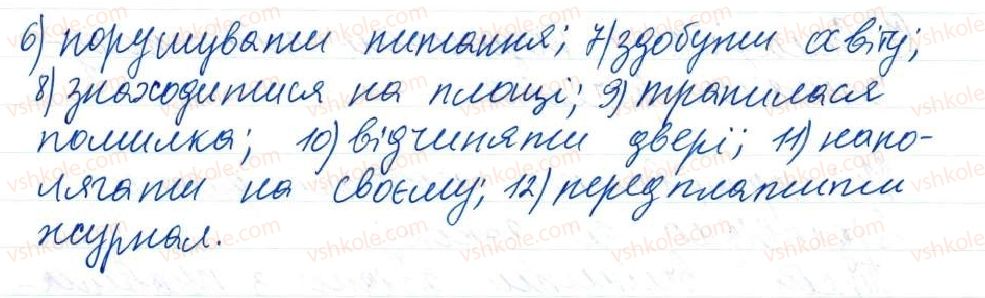 6) порушувати питання; 7) здобути освіту;
8) знаходитися на площі; 9) трапилася
помилка; 10) відчиняти двері; 11) напо-
лягати на своєму; 12) передплатити
журнал.